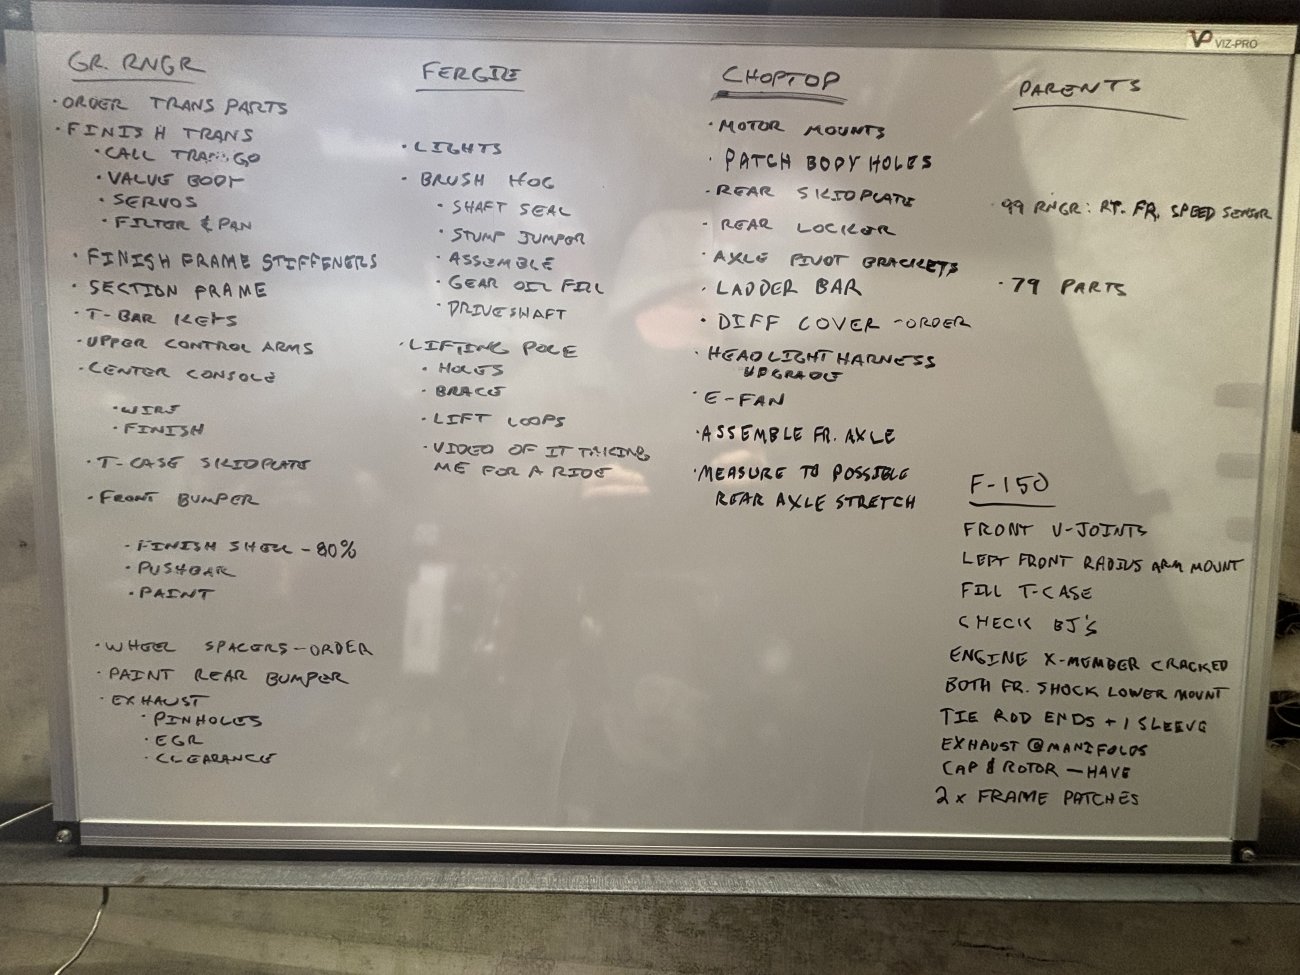 VP VIZ-PRO
GR. RNGR
· ORDER TRANS PARTS
· FINISH TRANS
· CALL TRANSGO
· VALVE BODY
· SERVOS
· FILTER & PAN
· FINISH FRAME STIFFENERS
· SECTION FRAME
· T-BAR KEYS
· UPPER CONTROL ARMS
· CENTER CONSOLE
· WIRE
· FINISH
· T-CASE SKIDPLATE
· FRONT BUMPER
· FINISH SHELL - 80%
· PUSHBAR
· PAINT
· WHEEL SPACERS - ORDER
· PAINT REAR BUMPER
· EXHAUST
· PINHOLES
· EGR
· CLEARANCE
FERGIE
· LIGHTS
· BRUSH HOG
· SHAFT SEAL
· STUMP JUMPER
· ASSEMBLE
· GEAR OIL FILL
· DRIVESHAFT
· LIFTING POLE
· HOLES
· BRACE
· LIFT LOOPS
· VIDEO OF IT TAKING
ME FOR A RIDE
CHOPTOP
· MOTOR MOUNTS
· PATCH BODY HOLES
· REAR SKIDPLATE
· REAR LOCKER
· AXLE PIVOT BRACKETS
· LADDER BAR
· DIFF COVER - ORDER
· HEADLIGHT HARNESS
UPGRADE
· E-FAN
· ASSEMBLE FR. AXLE
· MEASURE TO POSSIBLE
REAR AXLE STRETCH
PARENTS
· 99 RNGR: RT. FR. SPEED SENSOR
· 79 PARTS
F-150
FRONT U-JOINTS
LEFT FRONT RADIUS ARM MOUNT
FILL T-CASE
CHECK BJ'S
ENGINE X-MEMBER CRACKED
BOTH FR. SHOCK LOWER MOUNT
TIE ROD ENDS + 1 SLEEVE
EXHAUST @ MANIFOLDS
CAP & ROTOR - HAVE
2 x FRAME PATCHES